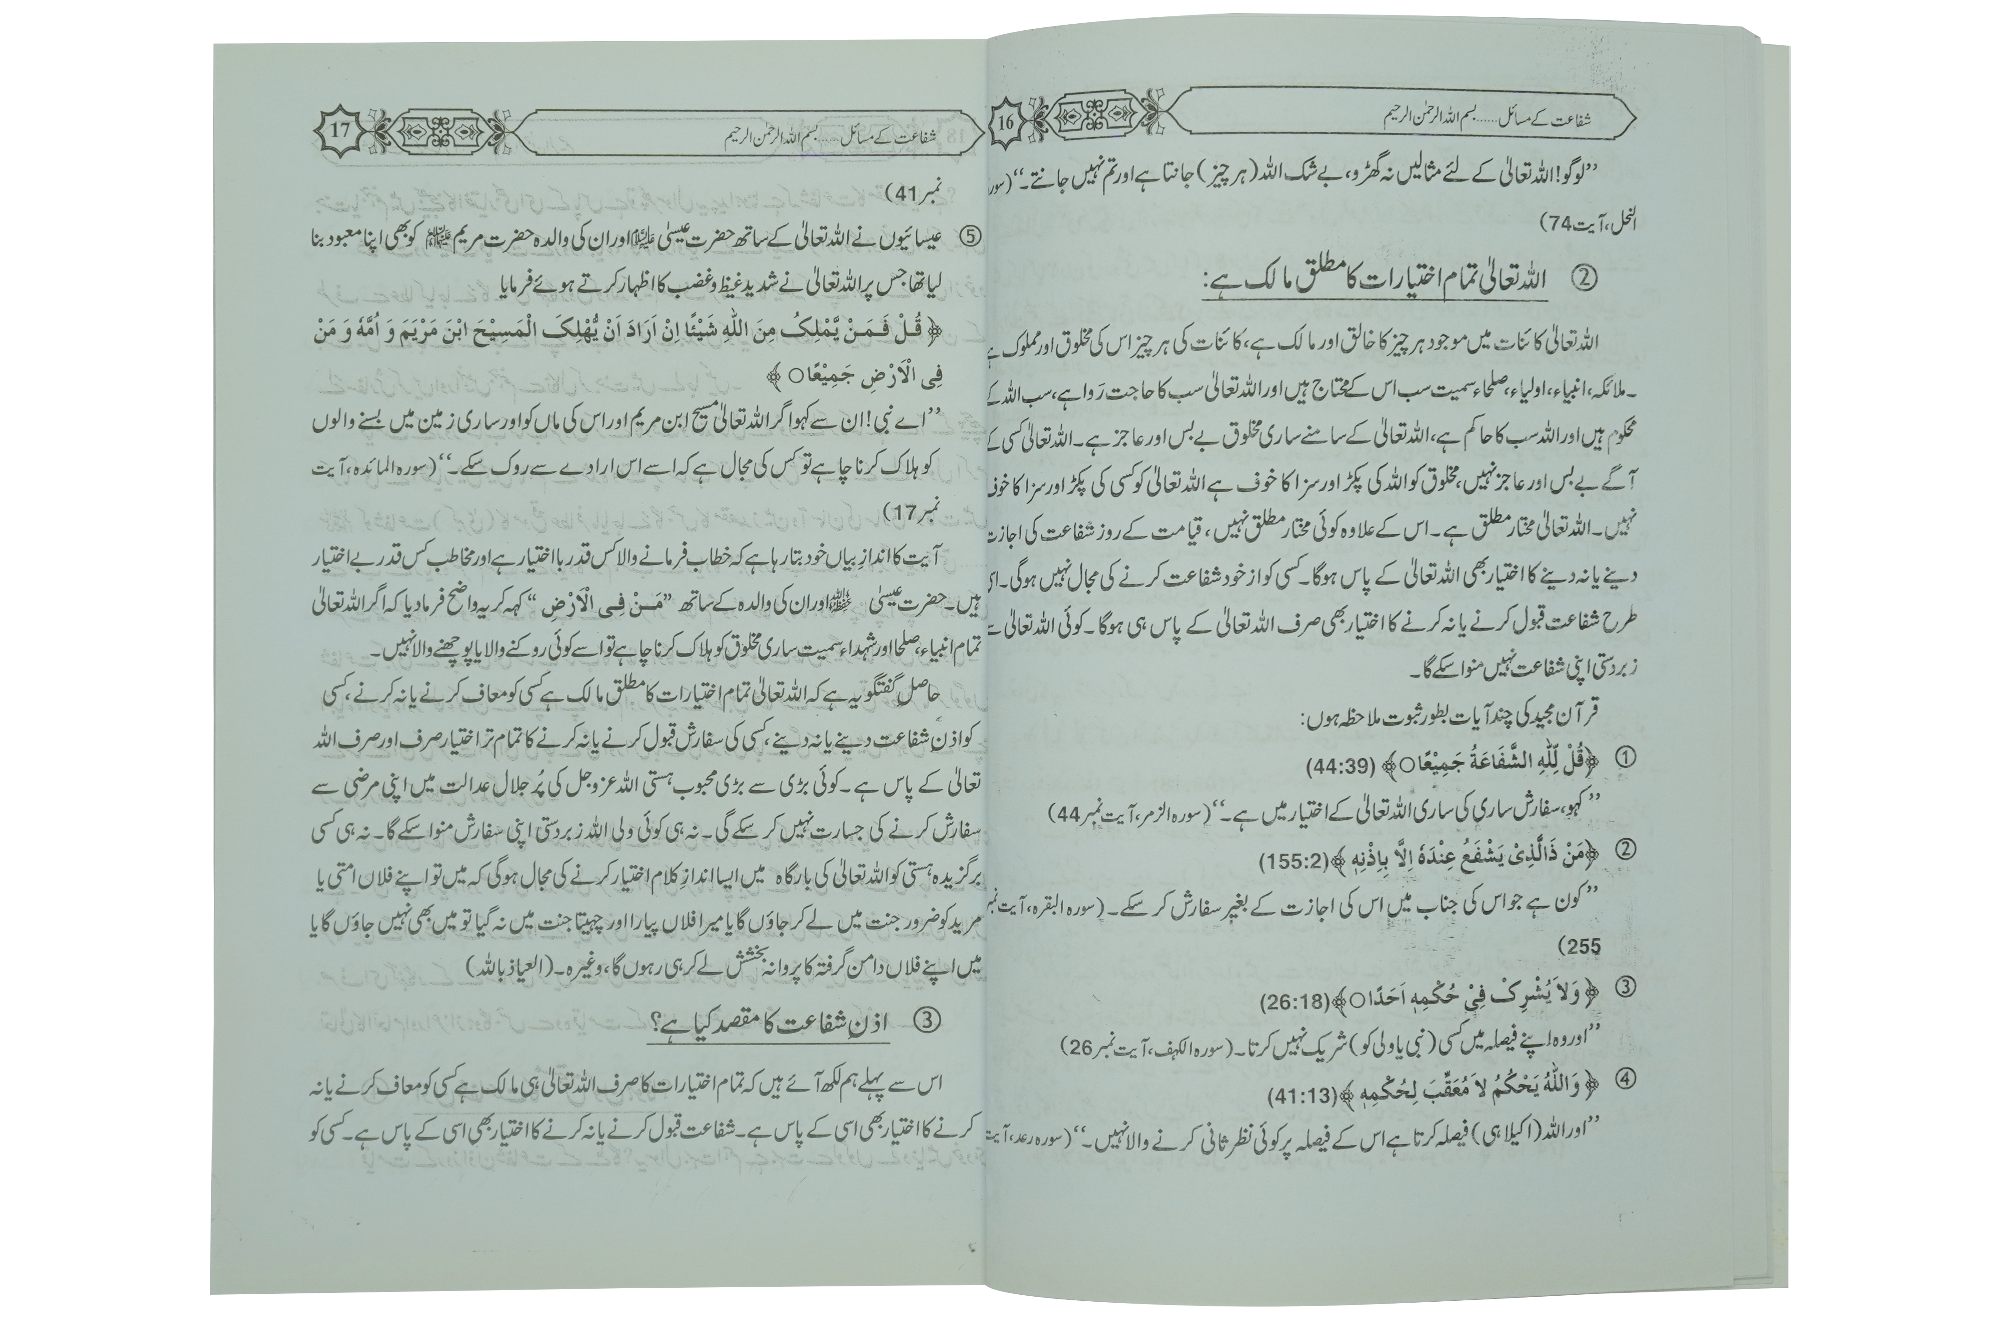 شفاعت کے مسائل......بسم اللہ الرحمٰن الرحیم
16
’’لوگو! اللہ تعالیٰ کے لئے مثالیں نہ گھڑو، بے شک اللہ (ہر چیز) جانتا ہے اور تم نہیں جانتے۔‘‘ (سورہ
النحل، آیت 74)
② اللہ تعالیٰ تمام اختیارات کا مطلق مالک ہے:
اللہ تعالیٰ کائنات میں موجود ہر چیز کا خالق اور مالک ہے، کائنات کی ہر چیز اس کی مخلوق اور مملوک ہے
۔ملائکہ، انبیاء، اولیاء، صلحاء سمیت سب اس کے محتاج ہیں اور اللہ تعالیٰ سب کا حاجت رَوا ہے، سب اللہ کے
محکوم ہیں اور اللہ سب کا حاکم ہے، اللہ تعالیٰ کے سامنے ساری مخلوق بے بس اور عاجز ہے۔ اللہ تعالیٰ کسی کے
آگے بے بس اور عاجز نہیں، مخلوق کو اللہ کی پکڑ اور سزا کا خوف ہے اللہ تعالیٰ کو کسی کی پکڑ اور سزا کا خوف
نہیں۔ اللہ تعالیٰ مختار مطلق ہے۔ اس کے علاوہ کوئی مختار مطلق نہیں، قیامت کے روز شفاعت کی اجازت
دینے یا نہ دینے کا اختیار بھی اللہ تعالیٰ کے پاس ہوگا۔ کسی کو از خود شفاعت کرنے کی مجال نہیں ہوگی۔ اسی
طرح شفاعت قبول کرنے یا نہ کرنے کا اختیار بھی صرف اللہ تعالیٰ کے پاس ہی ہوگا۔ کوئی اللہ تعالیٰ سے
زبردستی اپنی شفاعت نہیں منوا سکے گا۔
قرآن مجید کی چند آیات بطور ثبوت ملاحظہ ہوں:
① ﴿قُلْ لِّلّٰهِ الشَّفَاعَةُ جَمِيْعًا○﴾ (44:39)
’’کہو، سفارش ساری کی ساری اللہ تعالیٰ کے اختیار میں ہے۔‘‘ (سورہ الزمر، آیت نمبر 44)
② ﴿مَنْ ذَالَّذِیْ يَشْفَعُ عِنْدَهٗ اِلَّا بِاِذْنِهٖ﴾(155:2)
’’کون ہے جو اس کی جناب میں اس کی اجازت کے بغیر سفارش کر سکے۔ (سورہ البقرہ، آیت نمبر
255)
③ ﴿وَلاَ يُشْرِکُ فِیْ حُکْمِهٖ اَحَدًا○﴾(26:18)
’’اور وہ اپنے فیصلہ میں کسی (نبی یا ولی کو) شریک نہیں کرتا۔ (سورہ الکہف، آیت نمبر 26)
④ ﴿وَاللّٰهُ يَحْکُمُ لاَ مُعَقِّبَ لِحُکْمِهٖ﴾(41:13)
’’اور اللہ (اکیلا ہی) فیصلہ کرتا ہے اس کے فیصلہ پر کوئی نظر ثانی کرنے والا نہیں۔‘‘ (سورہ رعد، آیت
شفاعت کے مسائل......بسم اللہ الرحمٰن الرحیم
17
نمبر 41)
⑤ عیسائیوں نے اللہ تعالیٰ کے ساتھ حضرت عیسیٰ علیہ السلام اور ان کی والدہ حضرت مریم علیہا السلام کو بھی اپنا معبود بنا
لیا تھا جس پر اللہ تعالیٰ نے شدید غیظ و غضب کا اظہار کرتے ہوئے فرمایا
﴿قُلْ فَمَنْ يَّمْلِکُ مِنَ اللّٰهِ شَيْئًا اِنْ اَرَادَ اَنْ يُّهْلِکَ الْمَسِيْحَ ابْنَ مَرْيَمَ وَ اُمَّهٗ وَ مَنْ
فِی الْاَرْضِ جَمِيْعًا○﴾
’’اے نبی! ان سے کہو اگر اللہ تعالیٰ مسیح ابن مریم اور اس کی ماں کو اور ساری زمین میں بسنے والوں
کو ہلاک کرنا چاہے تو کس کی مجال ہے کہ اسے اس ارادے سے روک سکے۔‘‘ (سورہ المائدہ، آیت
نمبر 17)
آیت کا اندازِ بیاں خود بتا رہا ہے کہ خطاب فرمانے والا کس قدر با اختیار ہے اور مخاطب کس قدر بے اختیار
ہیں۔ حضرت عیسیٰ علیہ السلام اور ان کی والدہ کے ساتھ ’’مَنْ فِی الْاَرْضِ‘‘ کہہ کر یہ واضح فرما دیا کہ اگر اللہ تعالیٰ
تمام انبیاء، صلحا اور شہداء سمیت ساری مخلوق کو ہلاک کرنا چاہے تو اسے کوئی روکنے والا یا پوچھنے والا نہیں۔
حاصلِ گفتگو یہ ہے کہ اللہ تعالیٰ تمام اختیارات کا مطلق مالک ہے کسی کو معاف کرنے یا نہ کرنے، کسی
کو اذنِ شفاعت دینے یا نہ دینے، کسی کی سفارش قبول کرنے یا نہ کرنے کا تمام تر اختیار صرف اور صرف اللہ
تعالیٰ کے پاس ہے۔ کوئی بڑی سے بڑی محبوب ہستی اللہ عزوجل کی پُر جلال عدالت میں اپنی مرضی سے
سفارش کرنے کی جسارت نہیں کر سکے گی۔ نہ ہی کوئی ولی اللہ زبردستی اپنی سفارش منوا سکے گا۔ نہ ہی کسی
برگزیدہ ہستی کو اللہ تعالیٰ کی بارگاہ میں ایسا اندازِ کلام اختیار کرنے کی مجال ہوگی کہ میں تو اپنے فلاں امتی یا
مرید کو ضرور جنت میں لے کر جاؤں گا یا میرا فلاں پیارا اور چہیتا جنت میں نہ گیا تو میں بھی نہیں جاؤں گا یا
میں اپنے فلاں دامن گرفتہ کا پروانہ بخشش لے کر ہی رہوں گا، وغیرہ۔ (العیاذ باللہ)
③ اذنِ شفاعت کا مقصد کیا ہے؟
اس سے پہلے ہم لکھ آئے ہیں کہ تمام اختیارات کا صرف اللہ تعالیٰ ہی مالک ہے کسی کو معاف کرنے یا نہ
کرنے کا اختیار بھی اسی کے پاس ہے۔ شفاعت قبول کرنے یا نہ کرنے کا اختیار بھی اسی کے پاس ہے۔ کسی کو